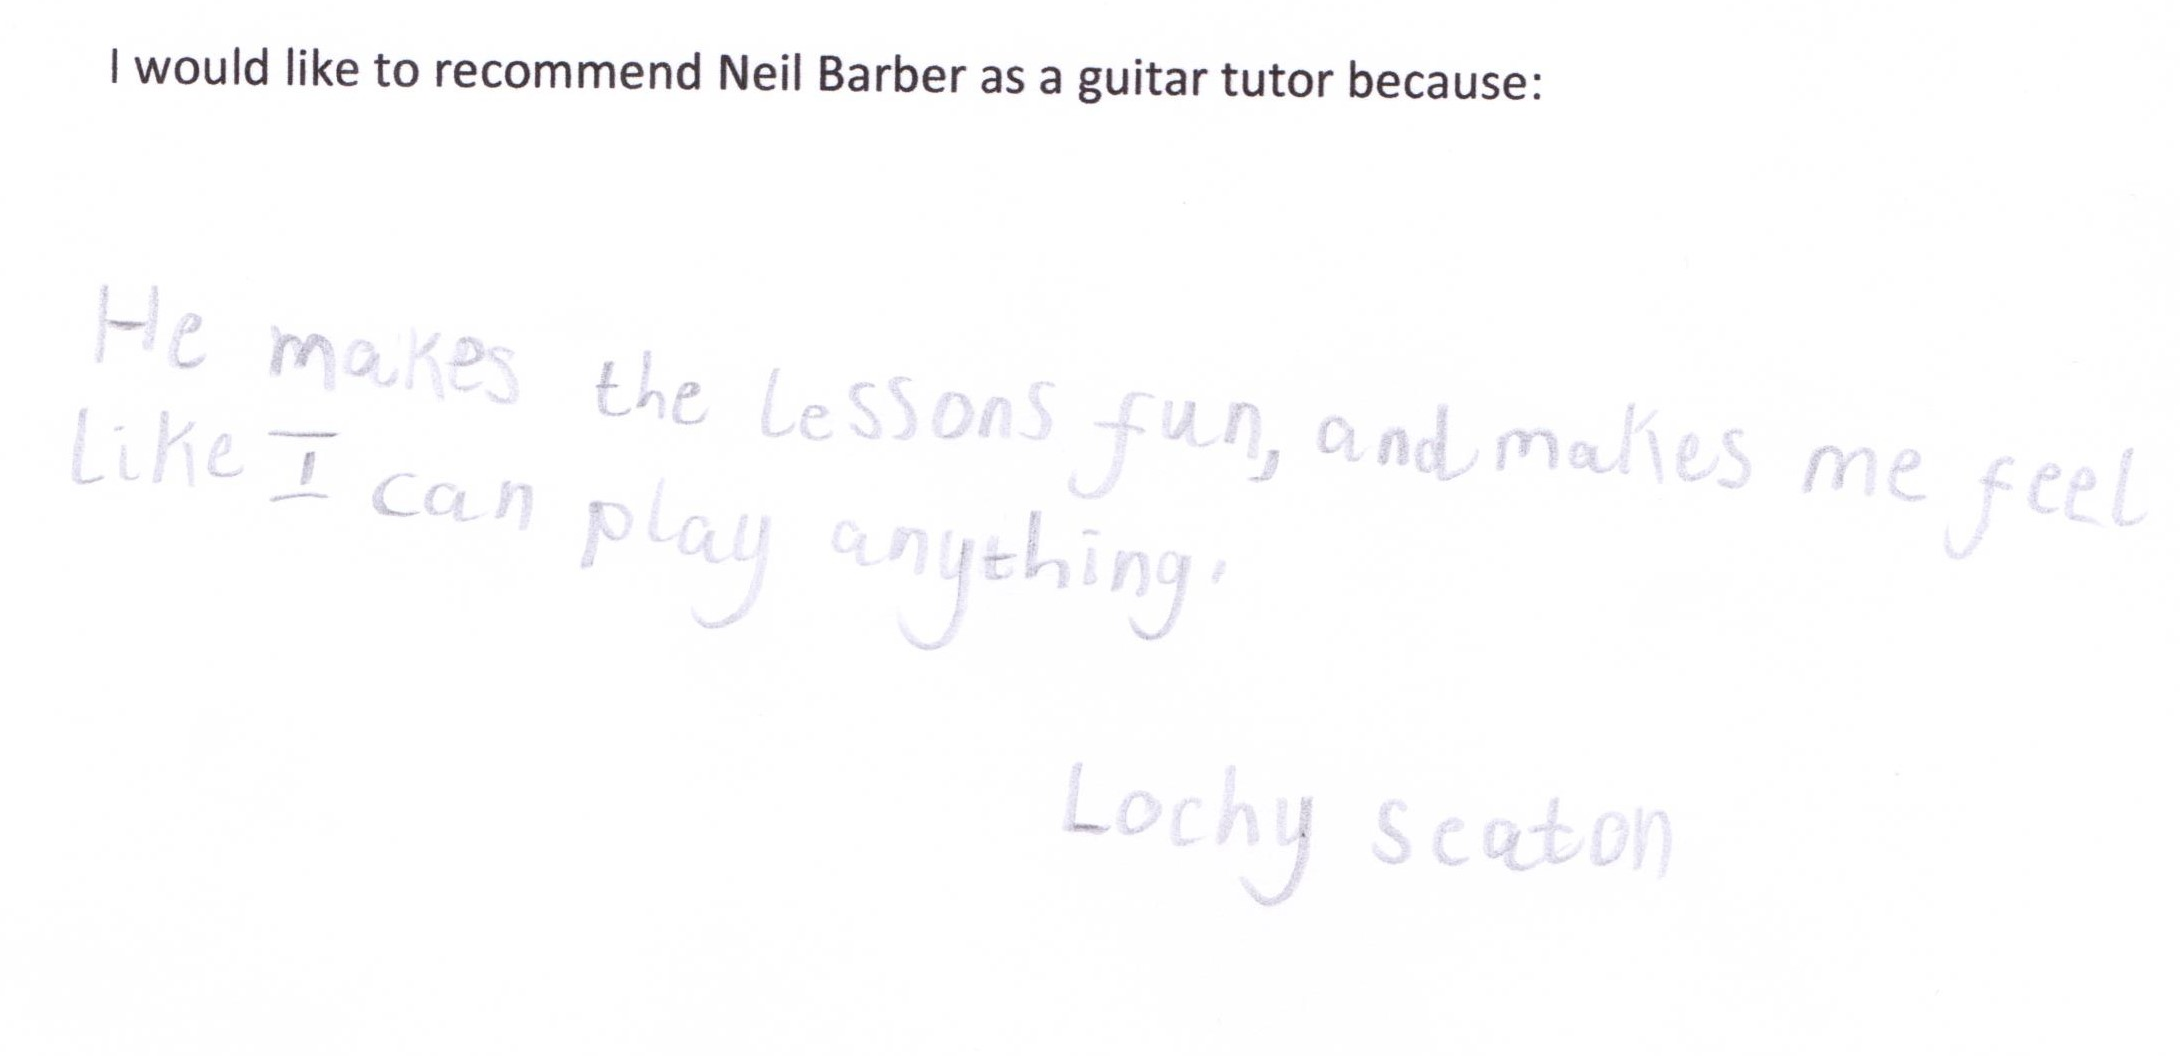 I would like to recommend Neil Barber as a guitar tutor because:
He makes the lessons fun, and makes me feel
like I can play anything.
Lochy Seaton